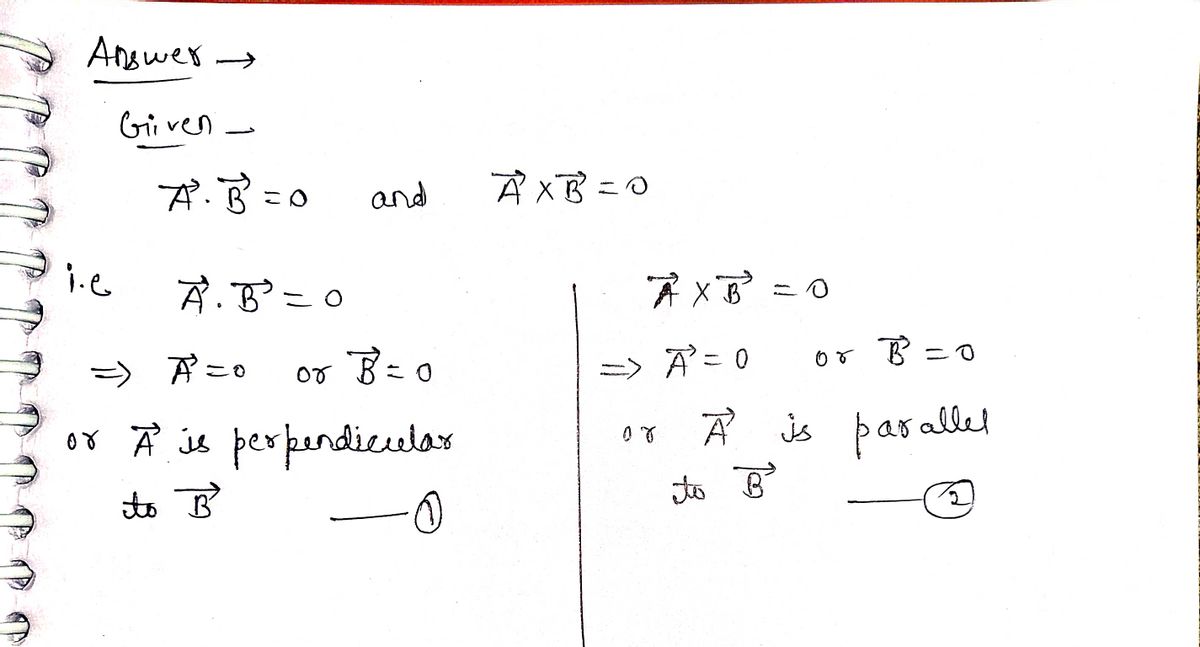 Answer →
Given –
A⃗ . B⃗ = 0 and A⃗ × B⃗ = 0
i.e A⃗ . B⃗ = 0
⇒ A⃗ = 0 or B⃗ = 0
or A⃗ is perpendicular
to B⃗ —— ①
A⃗ × B⃗ = 0
⇒ A⃗ = 0 or B⃗ = 0
or A⃗ is parallel
to B⃗ —— ②